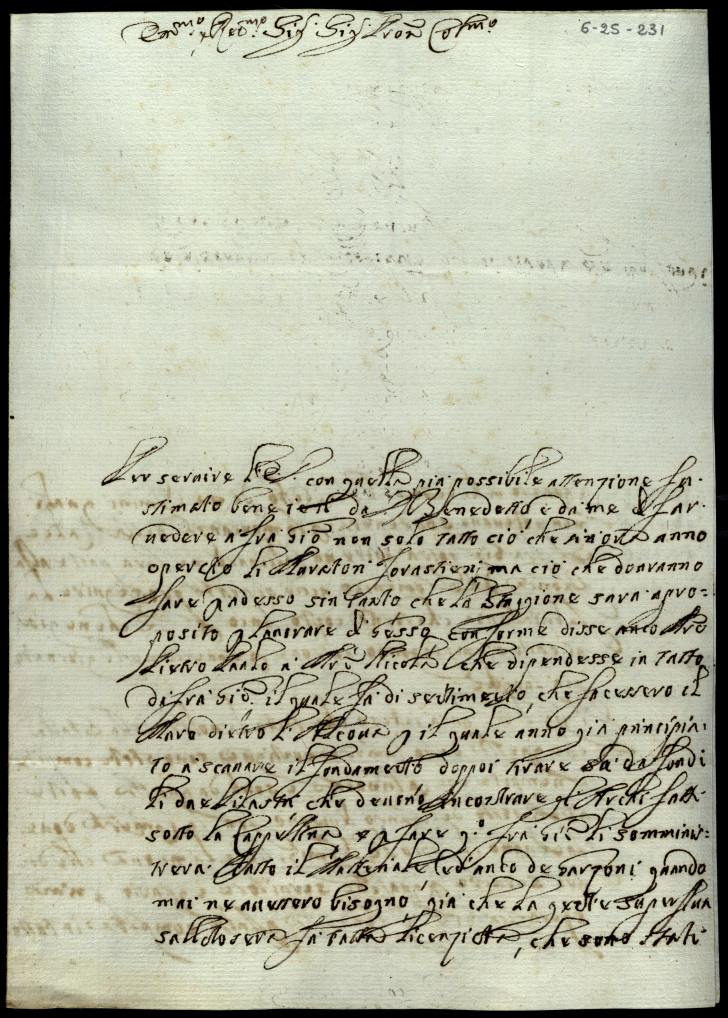 Em.mo e Re.mo Sig.r Sig.r Pron Col.mo
6-25-231
Per servire V.E. con quella più possibile attenzione fu
stimato bene ieri da M. Benedetto e da me di far
vedere a frà Gio: non solo tutto ciò, che sin ora anno
operato li Muratori forastieri, ma ciò che douranno
fare p adesso sin tanto che la Staggione sarà a pro=
posito p lauorare di Gesso, conforme disse anco Mre
Pietro Paulo a Mrō Nicola, che dipendesse in tutto
da frà Gio: il quale fù di sentimento, che facessero il
Muro dietro l'Alcoua p il quale anno già principia=
to a scauare il fondamento, doppoi tirare sù da fondi
li due Pilastri che deueno incontrare gl'Archi fatti
sotto la Cappellina e p fare q.o frà Gio: li somminis=
trerà tutto il Materiale, ed anco de Garzoni, quando
mai ne auessero bisogno, già che la gente superflua
sabbato sera fù tutta licenziata, che sono stati